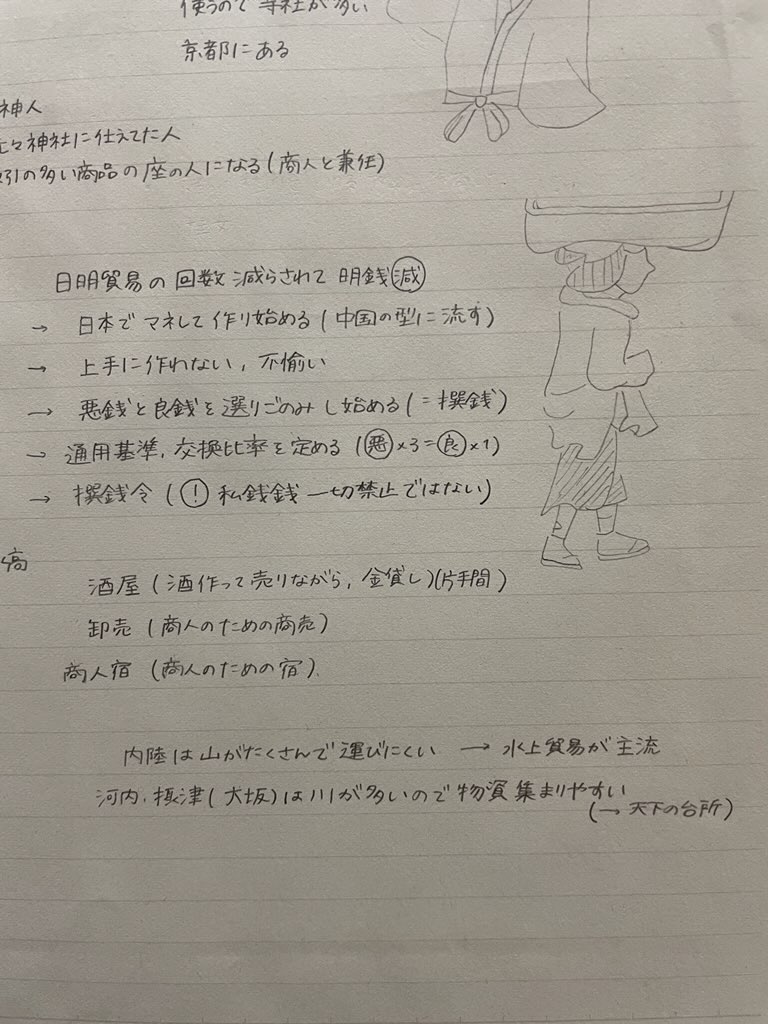 使うので寺社が多い
京都にある
神人
元々神社に仕えてた人
取引の多い商品の座の人になる(商人と兼任)
日明貿易の回数減らされて 明銭減
→ 日本でマネして作り始める(中国の型に流す)
→ 上手に作れない, 不愉い
→ 悪銭と良銭を選りごのみし始める(=撰銭)
→ 通用基準, 交換比率を定める(悪×3=良×1)
→ 撰銭令(! 私銭銭 一切禁止ではない)
酒屋(酒作って売りながら, 金貸し)(片手間)
卸売(商人のための商売)
商人宿(商人のための宿)
内陸は山がたくさんで運びにくい → 水上貿易が主流
河内・摂津(大坂)は川が多いので物資集まりやすい
(→ 天下の台所)